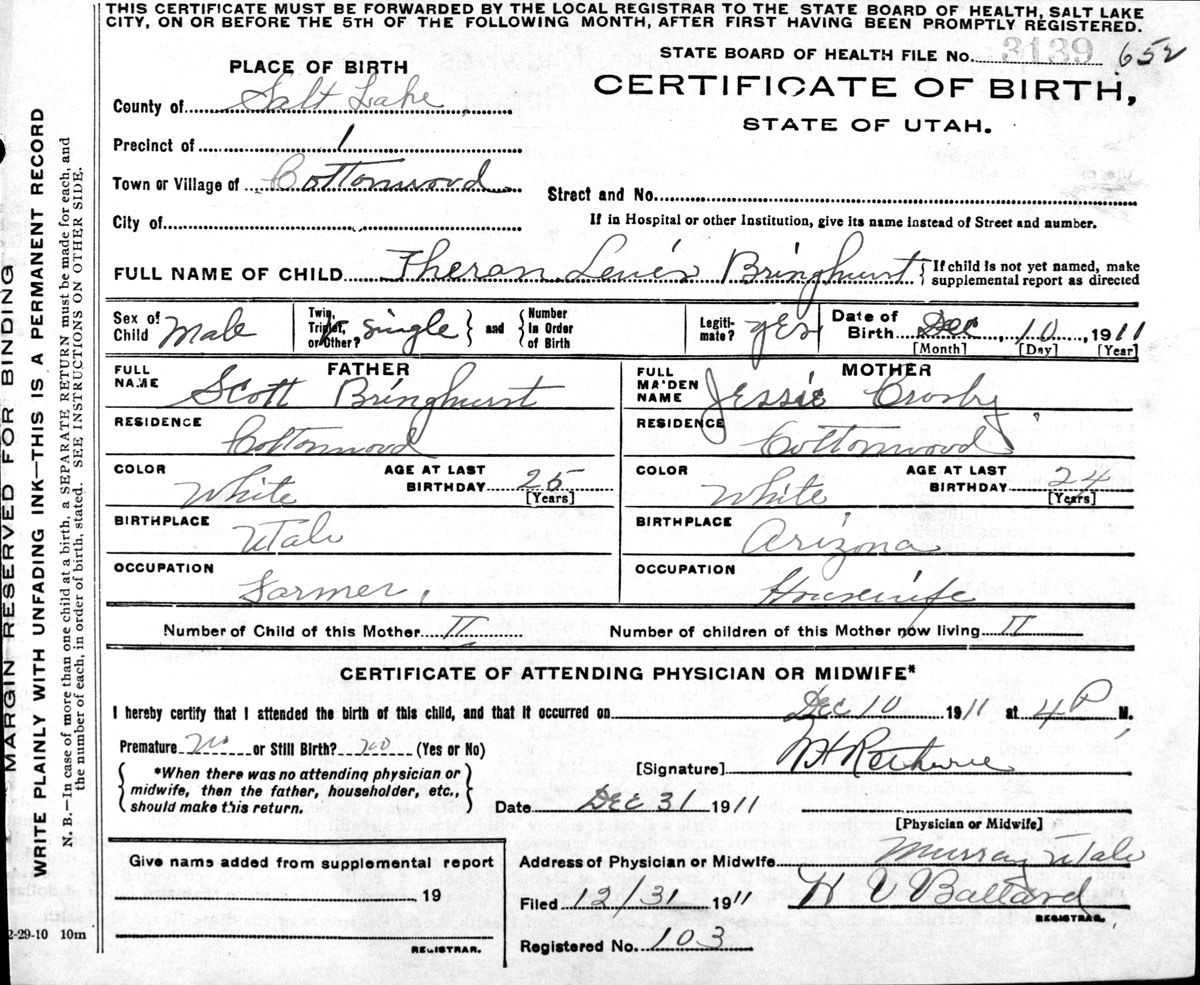 THIS CERTIFICATE MUST BE FORWARDED BY THE LOCAL REGISTRAR TO THE STATE BOARD OF HEALTH, SALT LAKE
CITY, ON OR BEFORE THE 5TH OF THE FOLLOWING MONTH, AFTER FIRST HAVING BEEN PROMPTLY REGISTERED.
STATE BOARD OF HEALTH FILE No. 3139 652
PLACE OF BIRTH
CERTIFICATE OF BIRTH,
County of Salt Lake
STATE OF UTAH.
Precinct of 1
Town or Village of Cottonwood
Street and No.
City of
If in Hospital or other Institution, give its name instead of Street and number.
FULL NAME OF CHILD Theran Lewis Bringhurst { If child is not yet named, make
supplemental report as directed
Sex of Child Male
Twin, Triplet, or Other? Single } and { Number in Order of Birth
Legiti-mate? yes
Date of Birth Dec, 10, 1911
[Month] [Day] [Year]
FATHER
FULL NAME Scott Bringhurst
RESIDENCE Cottonwood
COLOR White AGE AT LAST BIRTHDAY 25
[Years]
BIRTHPLACE Utah
OCCUPATION Farmer,
MOTHER
FULL MAIDEN NAME Jessie Crosby
RESIDENCE Cottonwood
COLOR White AGE AT LAST BIRTHDAY 24
[Years]
BIRTHPLACE Arizona
OCCUPATION Housewife
Number of Child of this Mother II Number of children of this Mother now living II
CERTIFICATE OF ATTENDING PHYSICIAN OR MIDWIFE*
I hereby certify that I attended the birth of this child, and that it occurred on Dec 10 1911 at 4 P M.
Premature no or Still Birth? no (Yes or No)
[Signature] W H
{ *When there was no attending physician or
midwife, then the father, householder, etc.,
should make this return. }
Date Dec 31 1911
[Physician or Midwife]
Give name added from supplemental report
19
REGISTRAR.
Address of Physician or Midwife Murray Utah
Filed 12/31 1911 H V Ballard
REGISTRAR.
Registered No. 103
2-29-10 10m
MARGIN RESERVED FOR BINDING
WRITE PLAINLY WITH UNFADING INK—THIS IS A PERMANENT RECORD
N. B.—In case of more than one child at a birth, a SEPARATE RETURN must be made for each, and
the number of each, in order of birth, stated. SEE INSTRUCTIONS ON OTHER SIDE.